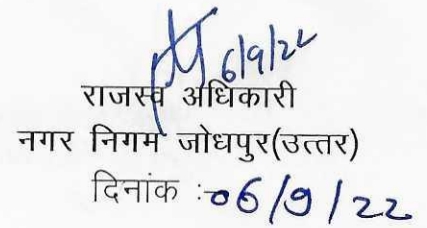 6/9/22
राजस्व अधिकारी
नगर निगम जोधपुर(उत्तर)
दिनांक :-06/9/22